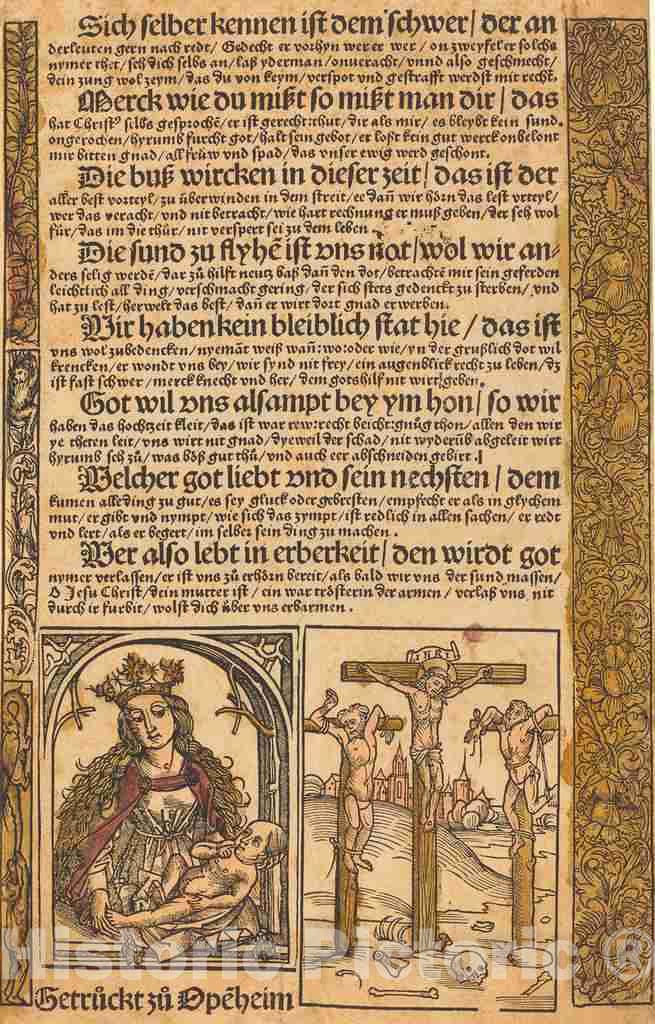 Sich selber kennen ist dem schwer / der an
derleuten gern nach redt / Gedecht er vorhyn wer er wer / on zweyfel er solchs
nymer thet / seh dich selbs an / laß yderman / onueracht / vnnd also geschmecht /
dein zung wol zeym / das du von keym / verspot vnd gestrafft werdst mit recht.
Merck wie du mißt so mißt man dir / das
hat Christꝰ selbs gesprochē / er ist gerecht :thut / dir als mir / es bleybt kein sund.
ongerochen / hyrumb furcht got / halt sein gebot / er loßt kein gut werck onbelont
mir bitten gnad / all früw vnd spad / das vnser ewig werd geschont.
Die buß wircken in dieser zeit / das ist der
aller best vorteyl / zu überwinden in dem streit / ee dañ wir hörn das lest vrteyl /
wer das veracht / vnd nit betracht / wie hart rechnung er muß geben / der seh wol
für / das im die thür / nit verspert sei zu dem leben
Die sund zu flyhē ist vns not / wol wir an-
ders selig werdē / dar zů hilft neutz baß dañ den dot / betrachtē mit sein geferden
leichtlich all ding / verschmacht gering / der sich stets gedenckt zu sterben / vnd
hat zu lest / her welt das best / dañ er wirt dort gnad erwerben.
Wir haben kein bleiblich stat hie / das ist
vns wol zubedencken / nyemāt weiß wañ: wo: oder wie / yn der grußlich dot wil
krencken / er wondt vns bey / wir synd nit frey / ein augenblick recht zu leben / dz
ist fast schwer / merck knecht vnd her / dem gots hilf nit wirt geben.
Got wil vns alsampt bey ym hon / so wir
haben das hochzeit kleit / das ist war rew: recht beicht: gnůg thon / allen den wir
ye theten leit / vns wirt nit gnad / dyeweil der schad / nit wyderüb abgeleit wirt
hyrumb seh zů / was böß gut thů / vnd auch eer abschneiden gebirt .
Welcher got liebt vnd sein nechsten / dem
kumen alle ding zu gut / es sey gluck oder gebresten / empfecht er als in glychem
mut / er gibt vnd nympt / wie sich das zympt / ist redlich in allen sachen / er redt
vnd lert / als er begert / im selber sein ding zu machen .
Wer also lebt in erberkeit / den wirdt got
nymer verlassen / er ist vns zů erhörn bereit / als bald wir vns der sund massen /
O Jesu Christ / dein mutter ist / ein war trösterin der armen / verlaß vns nit
durch ir furbit / wolst dich über vns erbarmen .
INRI
Getrůckt zů Opēheim
Historic Pictoric ®